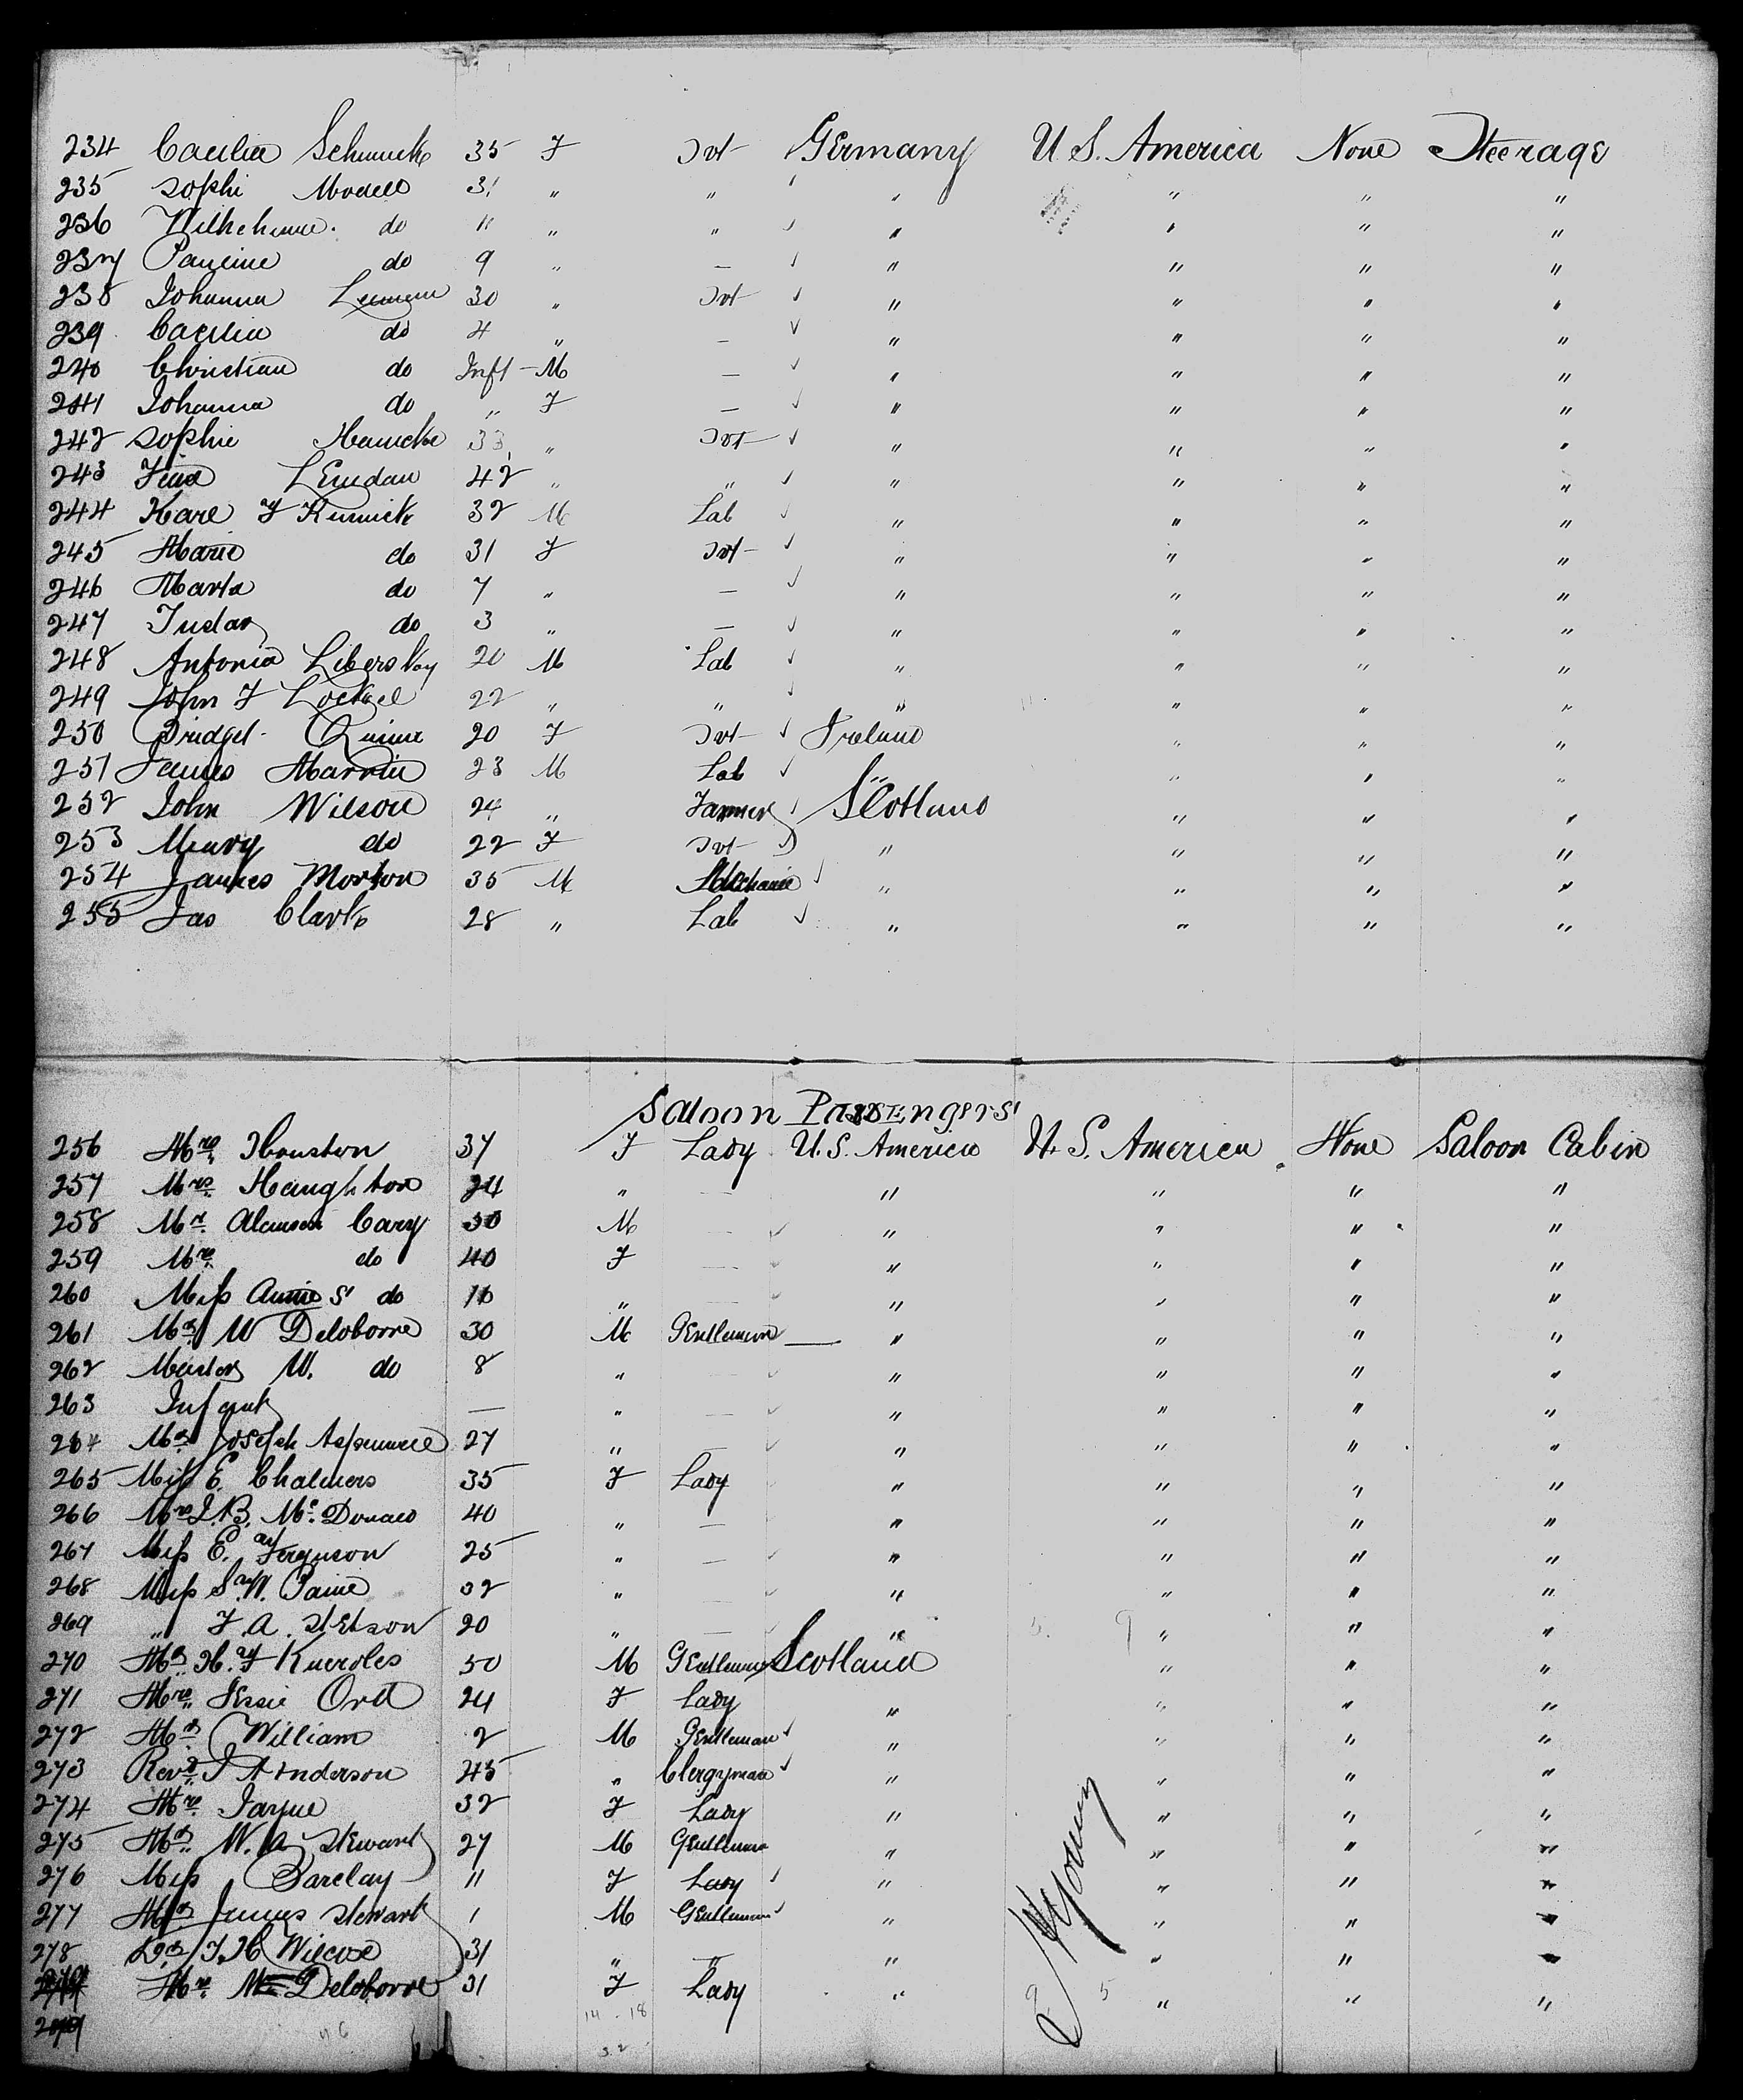 234 Caecilia Schmucke 35 F Svt Germany U.S. America None Steerage
235 Sophi 31 " " " " " "
236 Wilhelmine do 11 " " " " " "
237 Pauline do 9 " — " " " "
238 Johanna 30 " Svt " " " "
239 Caecilia do 4 " — " " " "
240 Christian do Inft M — " " " "
241 Johanna do " F — " " " "
242 Sophie 33 " Svt " " " "
243 42 " " " " " "
244 Karl F 32 M Lab " " " "
245 Marie do 31 F Svt " " " "
246 Marta do 7 " — " " " "
247 do 3 " — " " " "
248 Antonia Libersky 20 M Lab " " " "
249 John F 22 " " " " " "
250 Bridget Quinn 20 F Svt Ireland " " "
251 James 23 M Lab " " " "
252 John Wilson 24 " Farmer Scotland " " "
253 do 22 F Svt " " " "
254 James Morton 35 M Mechanic " " " "
255 Jas Clark 28 " Lab " " " "
Saloon Passengers
256 Mrs Houston 37 F Lady U.S. America U.S. America None Saloon Cabin
257 Mrs Haughton 24 " — " " " "
258 Mr Alanson Cary 50 M — " " " "
259 Mrs do 40 F — " " " "
260 Miss Annie S do 16 " — " " " "
261 Mr W Deloborre 30 M Gentleman — " " " "
262 Master W. do 8 " — " " " "
263 Infant — " — " " " "
264 Mr Joseph 27 " — " " " "
265 Miss E. Chalmers 35 F Lady " " " "
266 Mrs J.B. Mc Donald 40 " — " " " "
267 Miss E. Ferguson 25 " — " " " "
268 Miss S. W. Paine 32 " — " " " "
269 " F. A. Stetson 20 " — " " " "
270 Mr H. F 50 M Gentleman Scotland " " "
271 Mrs Jessie Ord 24 F Lady " " " "
272 Mr William 2 M Gentleman " " " "
273 Revd J Anderson 45 " Clergyman " " " "
274 Mrs 32 F Lady " " " "
275 Mr W. A Stewart 27 M Gentleman " " " "
276 Miss Barclay 11 F Lady " " " "
277 Mr James Stewart 1 M Gentleman " " " "
278 Dr J. H Wilcox 31 " " " " " "
Mrs Deloborre 31 F Lady " " " "
14 - 18